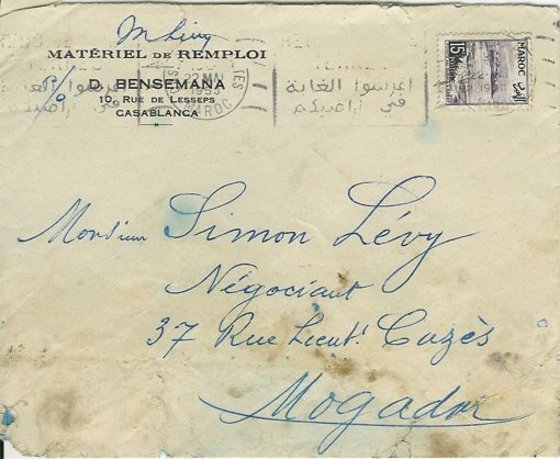 M Lévy
MATÉRIEL DE REMPLOI
P/o D. BENSEMANA
10, RUE DE LESSEPS
CASABLANCA
22 MAI
1953
MAROC
اغرسوا الغابة
في اراضيكم
اغرسوا الغابة
في اراضيكم
15
MAROC
Monsieur Simon Lévy
Négociant
37 Rue Lieut! Cazès
Mogador